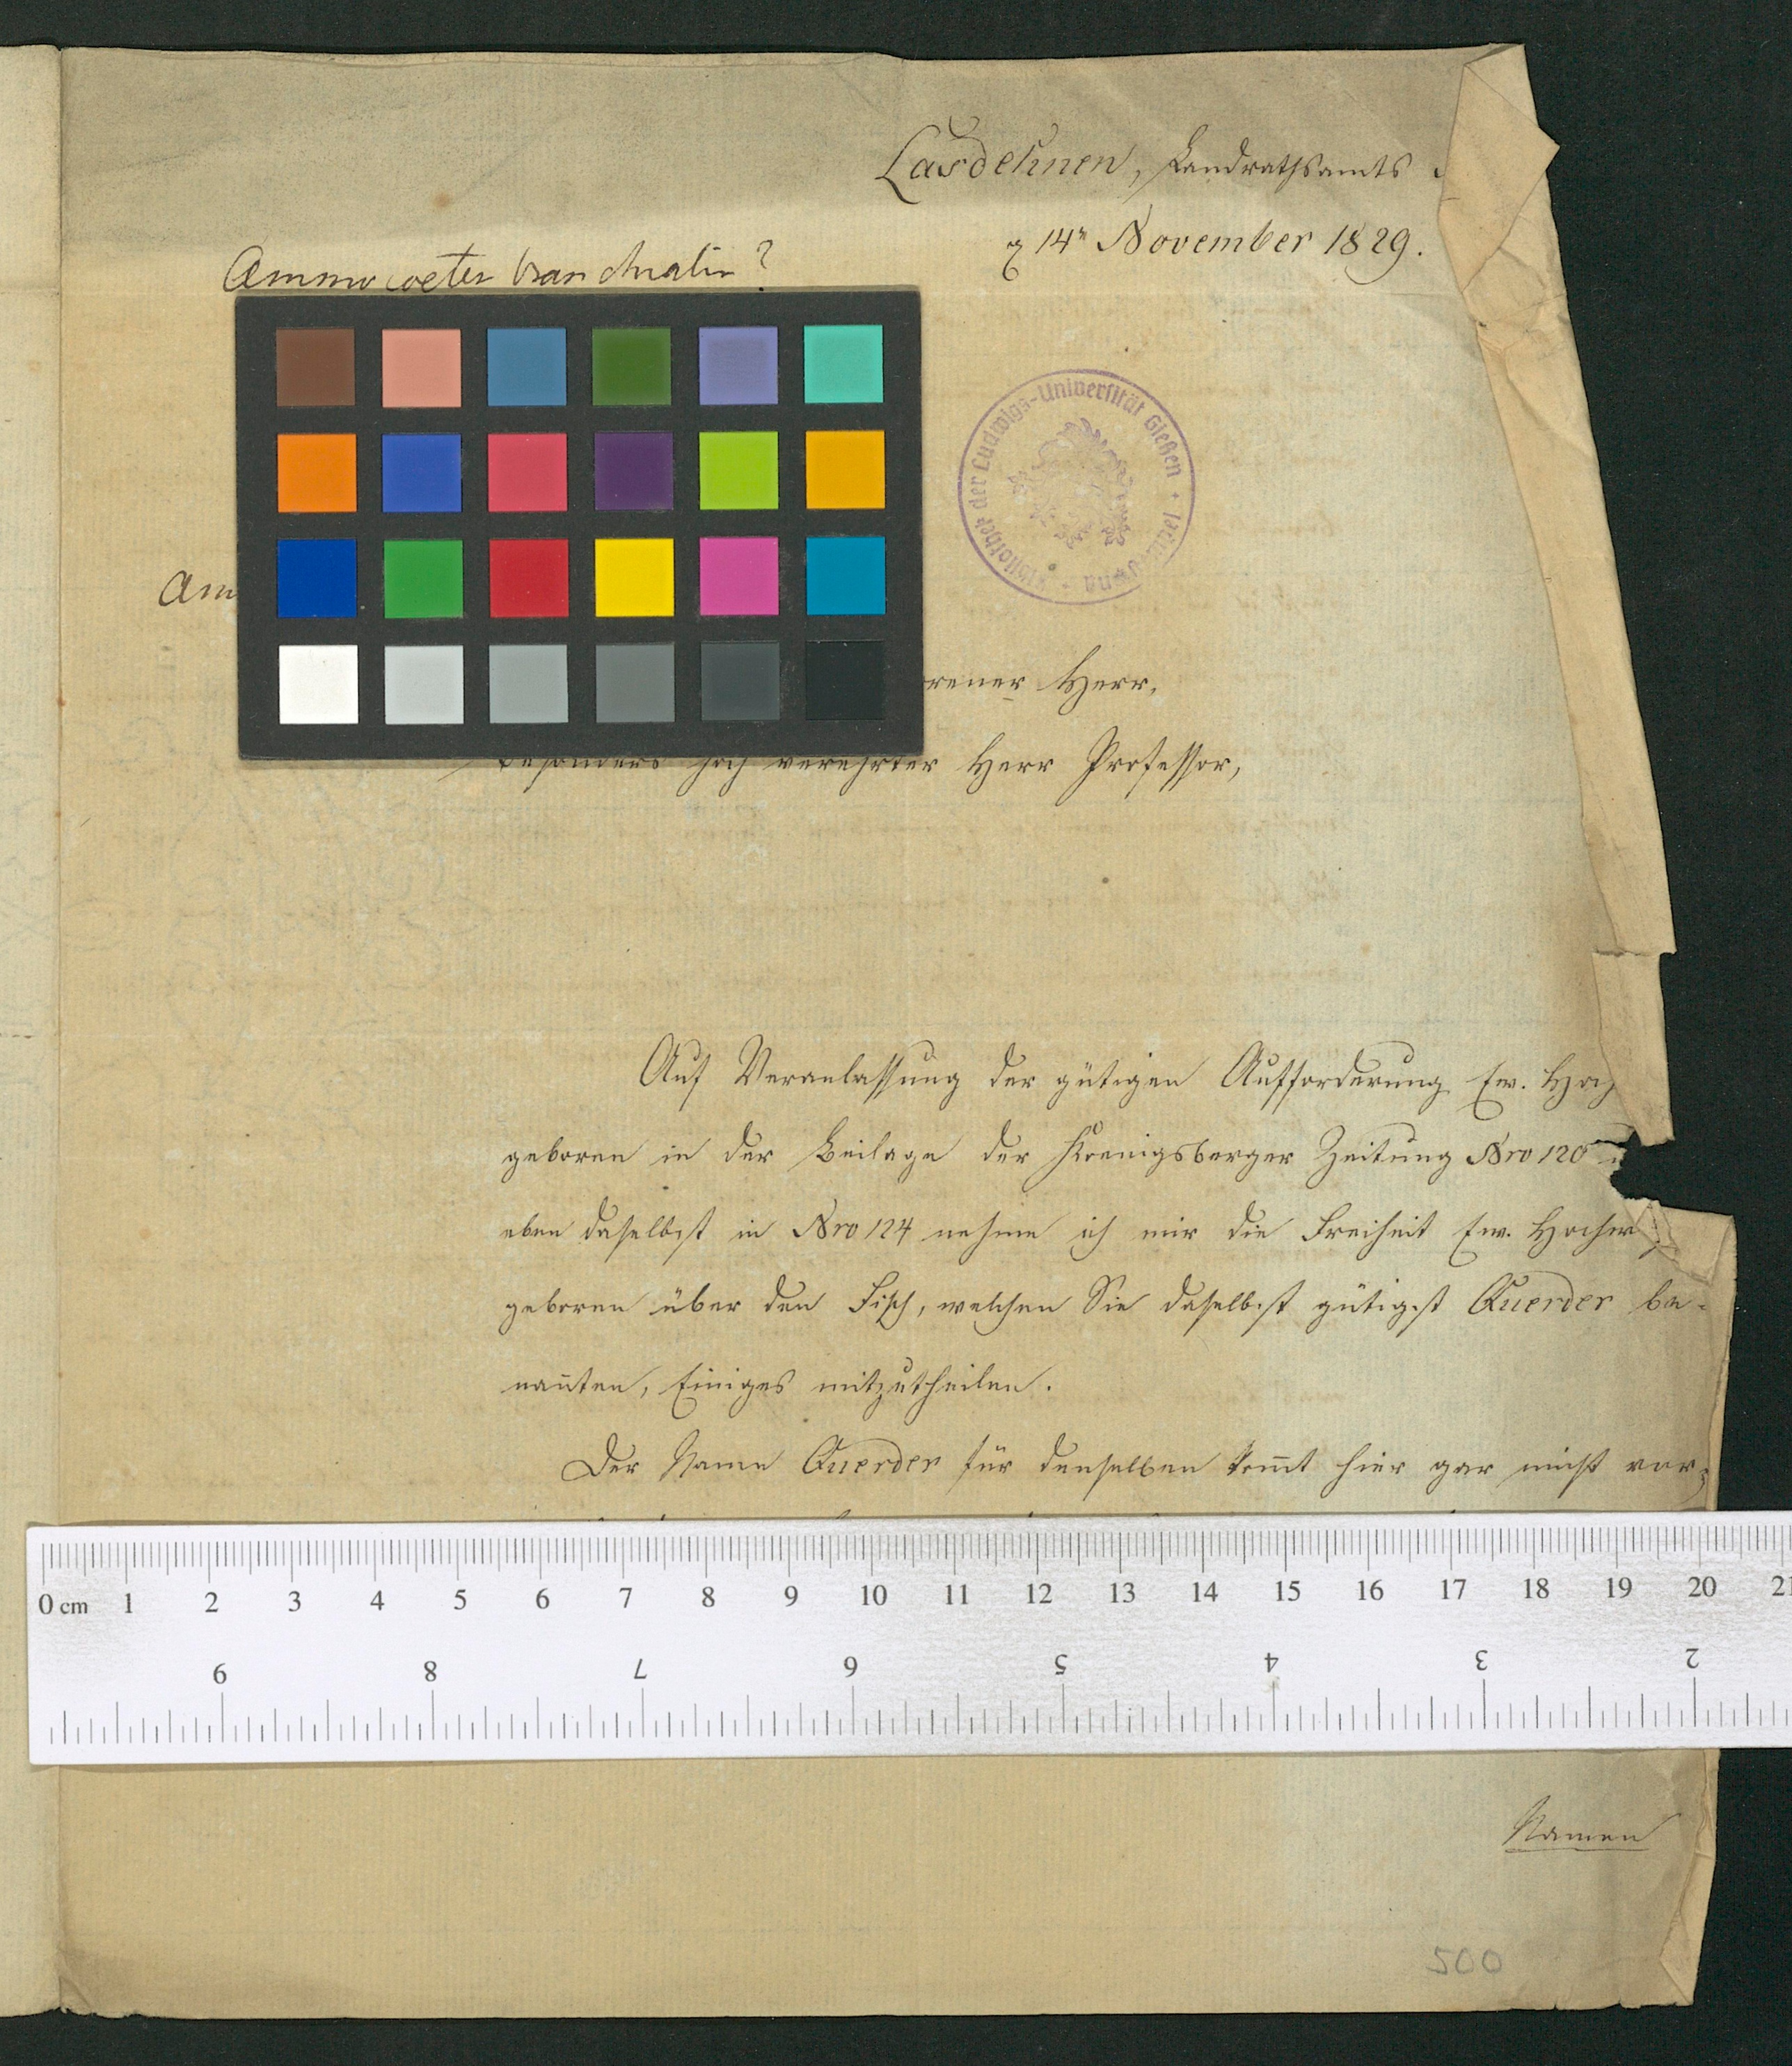 Lasdehnen, Landrathsamts
14n November 1829.
Ammocoetes branchialis?
Bibliothek der Ludwigs-Universität Gießen
Am
rener Herr,
besonders hoch verehrter Herr Professor,
Auf Veranlassung der gütigen Aufforderung Ew. Hoch
geboren in der Beilage der Koenigsberger Zeitung Nro 120
eben daselbst in Nro 124 nehme ich mir die Freiheit Ew. Hochw
geboren über den Fisch, welchen Sie daselbst gütigst Querder be-
nan̄ten, Einiges mitzutheilen.
Der Name Querder für denselben kom̄t hier gar nicht vor;
0 cm 1 2 3 4 5 6 7 8 9 10 11 12 13 14 15 16 17 18 19 20 21
9 8 7 6 5 4 3 2
Namen
500